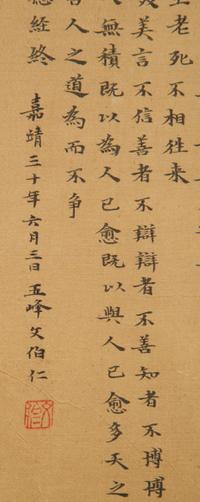 老死不相徃来
美言不信善者不辯辯者不善知者不博博
人無積既以為人已愈既以與人已愈多天之
人之道為而不争
德經終
嘉靖三十年六月三日五峰文伯仁